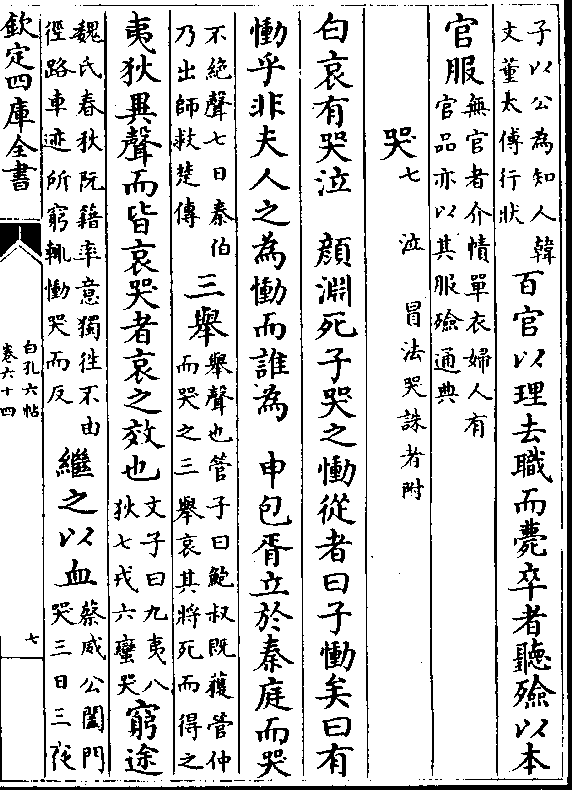 子以公為知人韓
文董太傅行狀
百官以理去職而薨卒者聽殮以本
官服
無官者介情單衣婦人有
官品亦以其服殮通典
哭七 泣 冒法哭誅者附
白哀有哭泣 顔淵死子哭之慟從者曰子慟矣曰有
慟乎非夫人之為慟而誰為 申包胥立於秦庭而哭
不絶聲七日秦伯
乃出師救楚傳
三舉
舉聲也管子曰鮑叔既獲管仲
而哭之三舉哀其將死而得之
夷狄異聲而皆哀哭者哀之效也
文子曰九夷八
狄七戎六蠻哭
窮途
魏氏春秋阮籍率意獨徃不由
徑路車迹所窮輒慟哭而反
繼之以血
蔡威公闔門
哭三日三夜
欽定四庫全書
白孔六帖
卷六十四
七